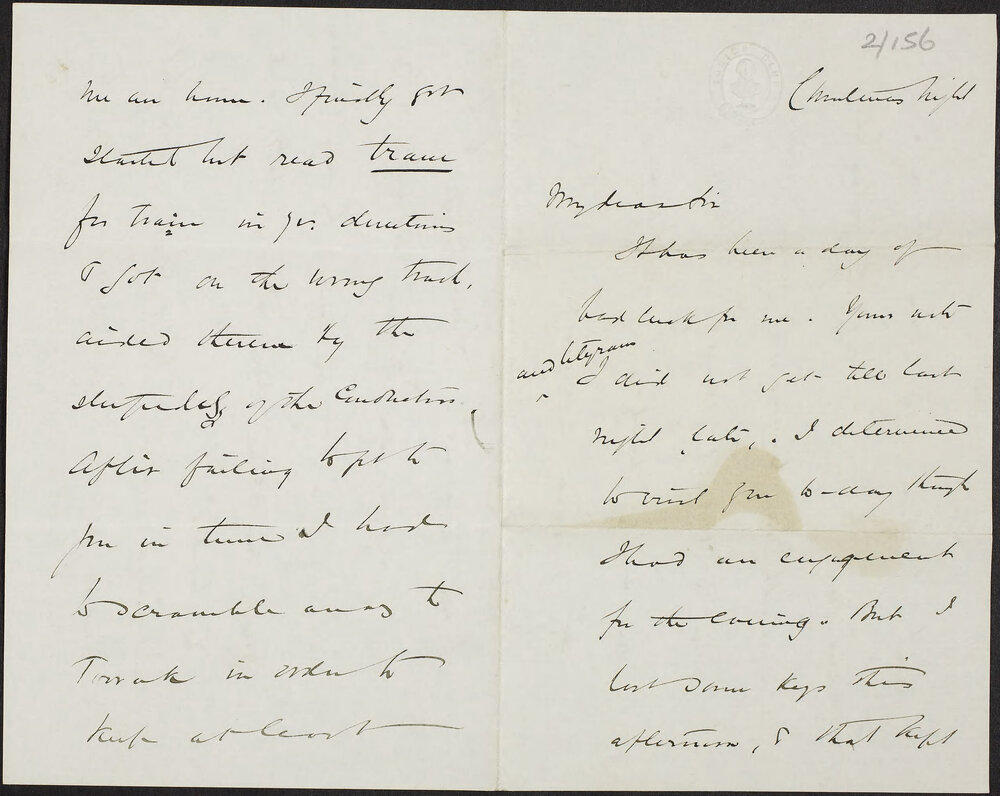 2/156
Christmas Night
My dear Sir
It has been a day of
bad luck for me. Your note
and letgram
I did not get till last
night late, . I determined
to visit you to-day though
I had an engagement
for the evening. But I
lost some keys this
afternoon, & that kept
me an hour. I finally got
started but read tram
for train in yr. directions
& got on the wrong track,
aided therein by the
stupidity of the Conductors.
After failing to get to
you in time I had
to scramble away to
Toorak in order to
keep at least